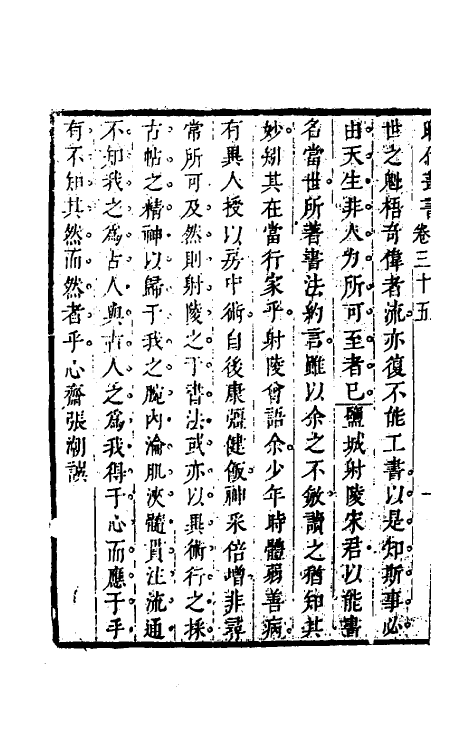 昭代叢書卷三十五 一
世之魁梧奇偉者流亦復不能工書以是知斯事必
由天生非人力所可至者已鹽城射陵宋君以能書
名當世所著書法約言雖以余之不敏讀之猶知其
妙矧其在當行家乎射陵曾語余少年時體弱善病
有異人授以房中術自後康彊健飯神采倍增非尋
常所可及然則射陵之于書法或亦以異術行之採
古帖之精神以歸于我之腕内淪肌浹髓貫注流通
不知我之爲古人與古人之爲我得于心而應于手
有不知其然而然者乎心齋張潮譔